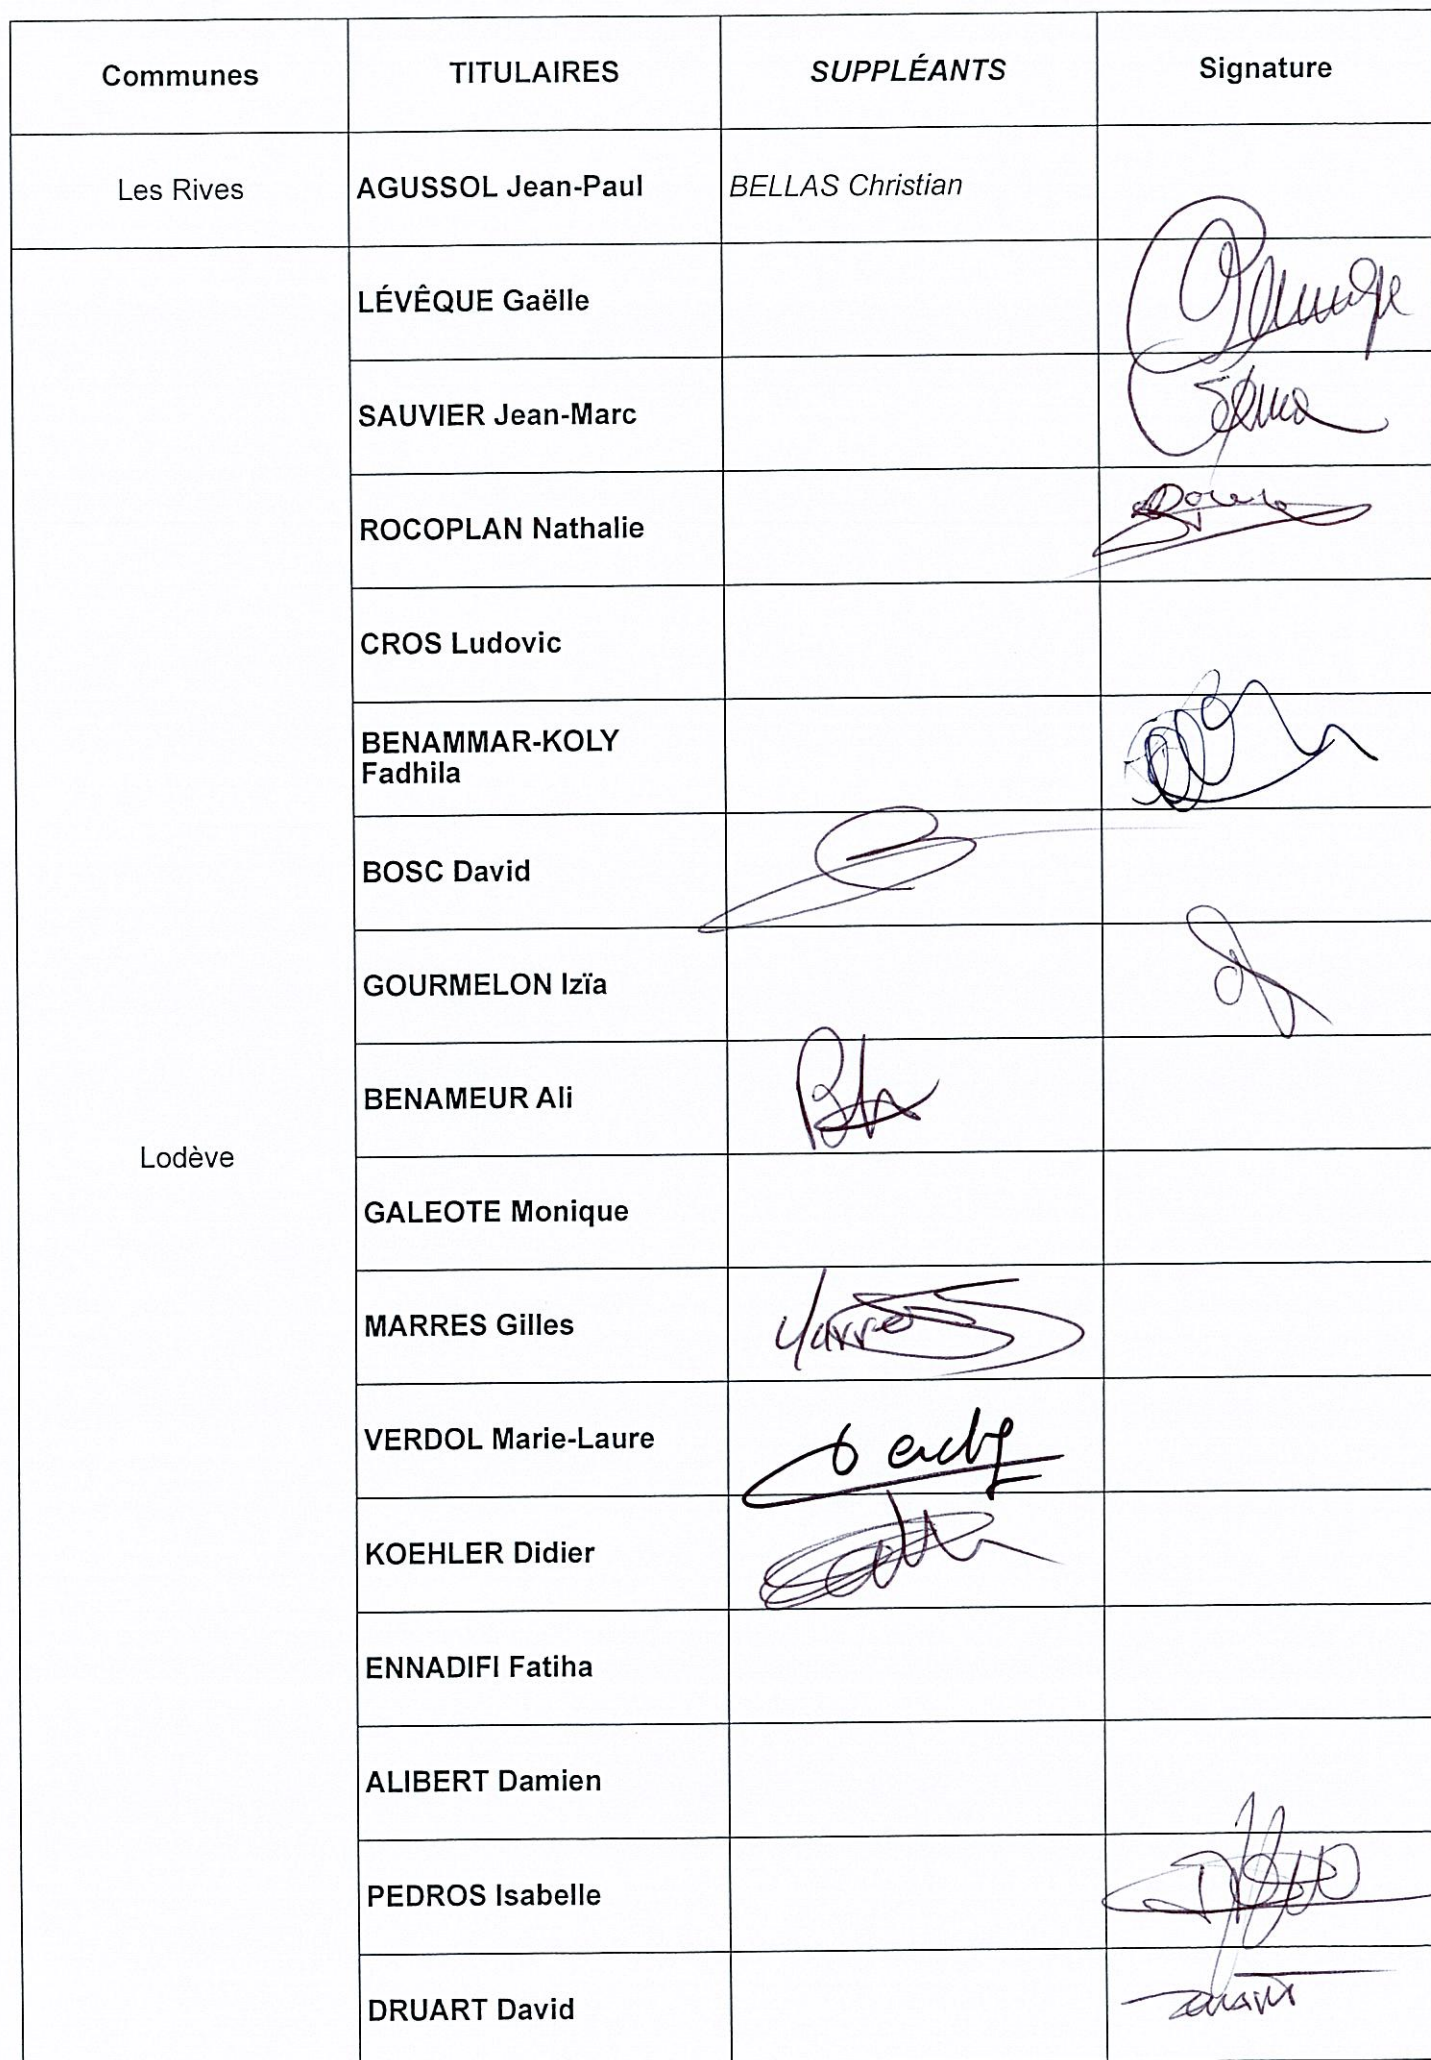 Communes TITULAIRES SUPPLÉANTS Signature
Les Rives AGUSSOL Jean-Paul BELLAS Christian
LÉVÊQUE Gaëlle
SAUVIER Jean-Marc
ROCOPLAN Nathalie
CROS Ludovic
BENAMMAR-KOLY
Fadhila
BOSC David
GOURMELON Izïa
BENAMEUR Ali
Lodève
GALEOTE Monique
MARRES Gilles
VERDOL Marie-Laure
KOEHLER Didier
ENNADIFI Fatiha
ALIBERT Damien
PEDROS Isabelle
DRUART David